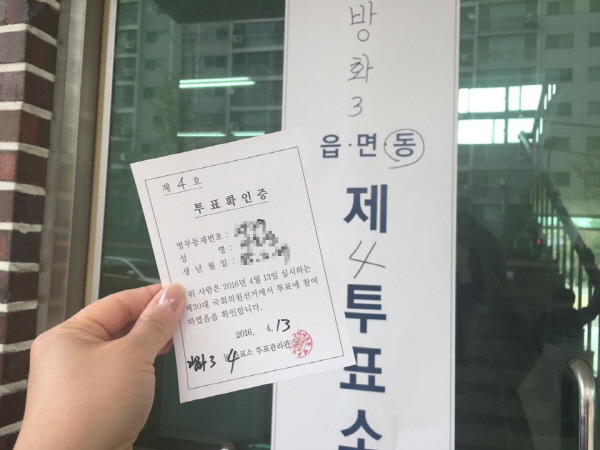 방화3
읍·면·동
제4투표소
제 4 호
투표확인증
명부등재번호 :
성 명 :
생년월일 :
위 사람은 2016년 4월 13일 실시하는
제20대 국회의원선거에서 투표에 참여
하였음을 확인합니다.
2016. 4. 13
방화3 동 4 투표소 투표관리관